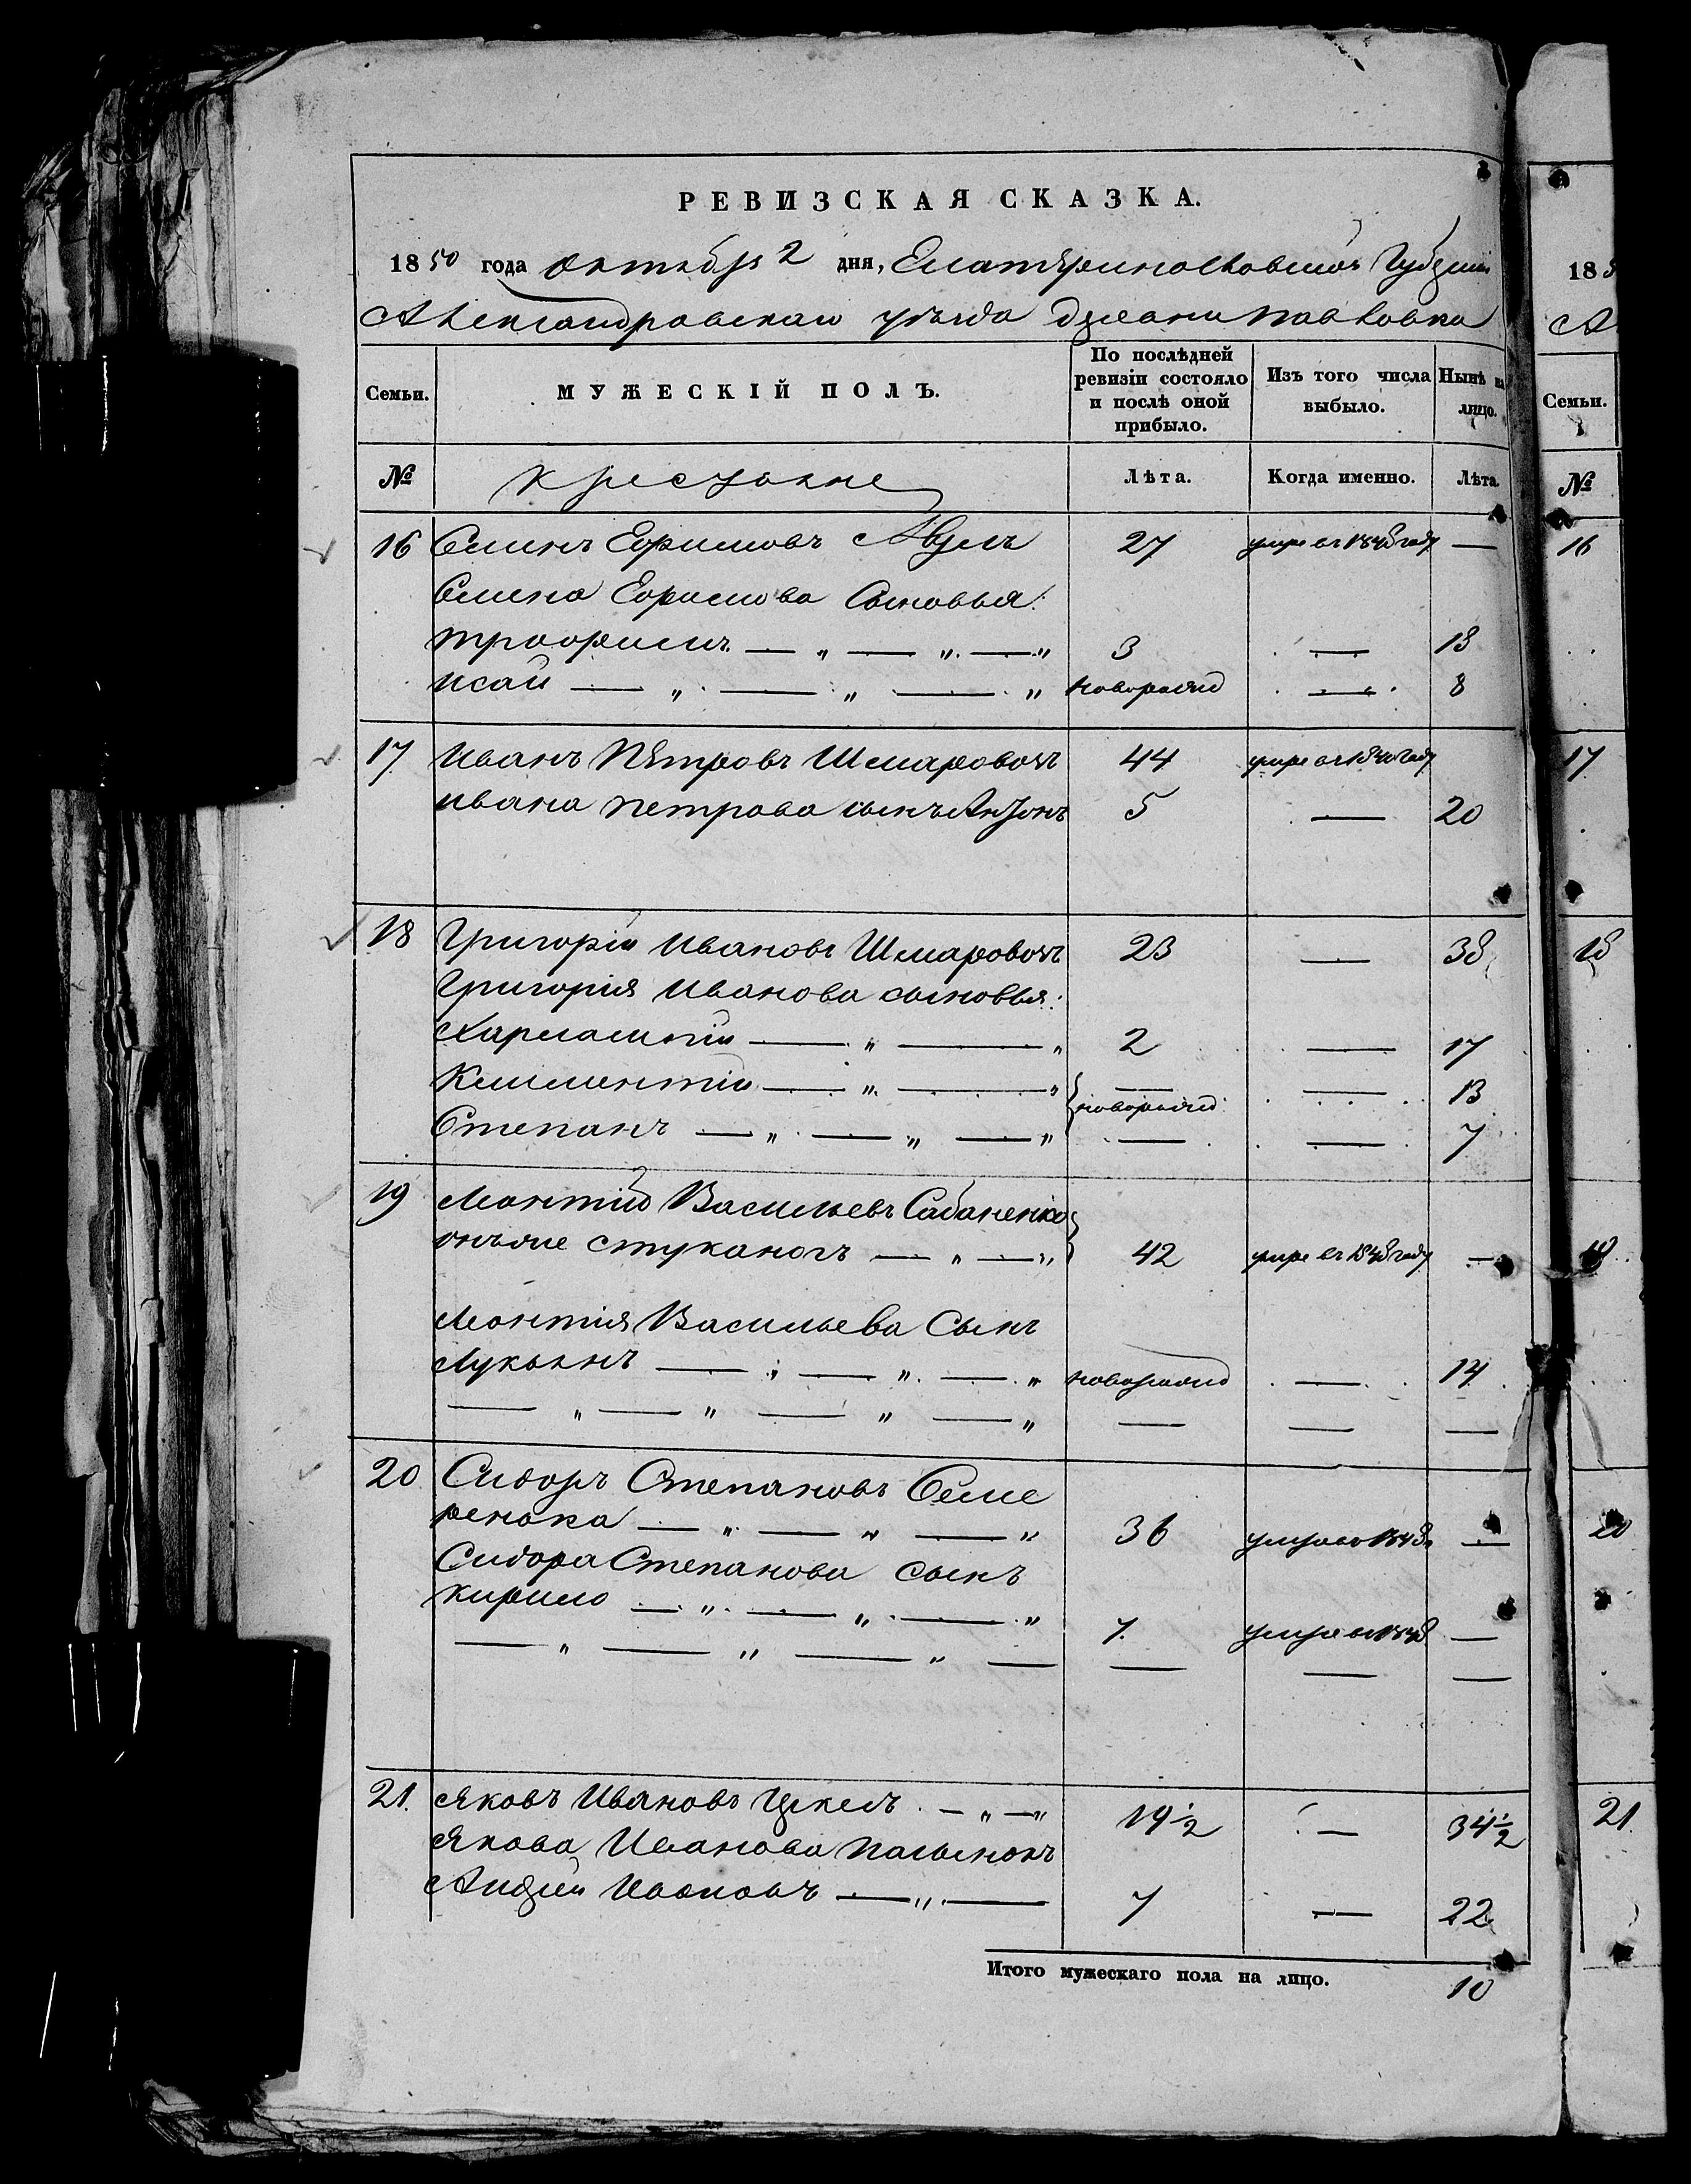 РЕВИЗСКАЯ СКАЗКА.
1850 года октября 2 дня, Екатеринославской Губернии
Александровскаго уѣзда деревни Павловки
Семьи. МУЖЕСКІЙ ПОЛЪ. По послѣдней ревизіи состояло и послѣ оной прибыло. Изъ того числа выбыло. Нынѣ на лицо.
№ крестьяне Лѣта. Когда именно. Лѣта.
16 Семенъ Ефимовъ 27 умре въ 1848 году —
Семена Ефимова Сыновья:
трофимъ — „ — „ — „ 3 — 18
исай — „ — „ — „ новорожд — 8
17 Иванъ Петровъ Шмаровозъ 44 умре въ году
ивана петрова сынъ Антонъ 5 — 20
18 Григорій Ивановъ Шмаровозъ 23 — 38
Григорія Иванова сыновья:
Харлампій — „ — „ 2 — 17
Климентій — „ — „ — — 13
новорожд:
Степанъ — „ — „ — „ — — 7
19 Леонтій Васильевъ Сабаненко
онъже стуканогъ — „ — „ 42 умре въ 1848 году —
Леонтія Васильева Сынъ
Лукьянъ — „ — „ — „ новорожд — 14
— „ — „ — „ — „ — — —
20 Сидоръ Степановъ Семе
ренока — „ — „ — „ 36 умре въ 1848 —
Сидора Степанова сынъ
кирило — „ — „ — „ 7. умре въ 1848 —
— „ — „ — „ — — — —
21. Яковъ Ивановъ — „ — „ 19½ — 34½
Якова Иванова пасынокъ
Андрей Ивановъ — „ — 7 — 22
Итого мужескаго пола на лицо. 10
18
А
Семьи.
№
16
17
18
19
20
21